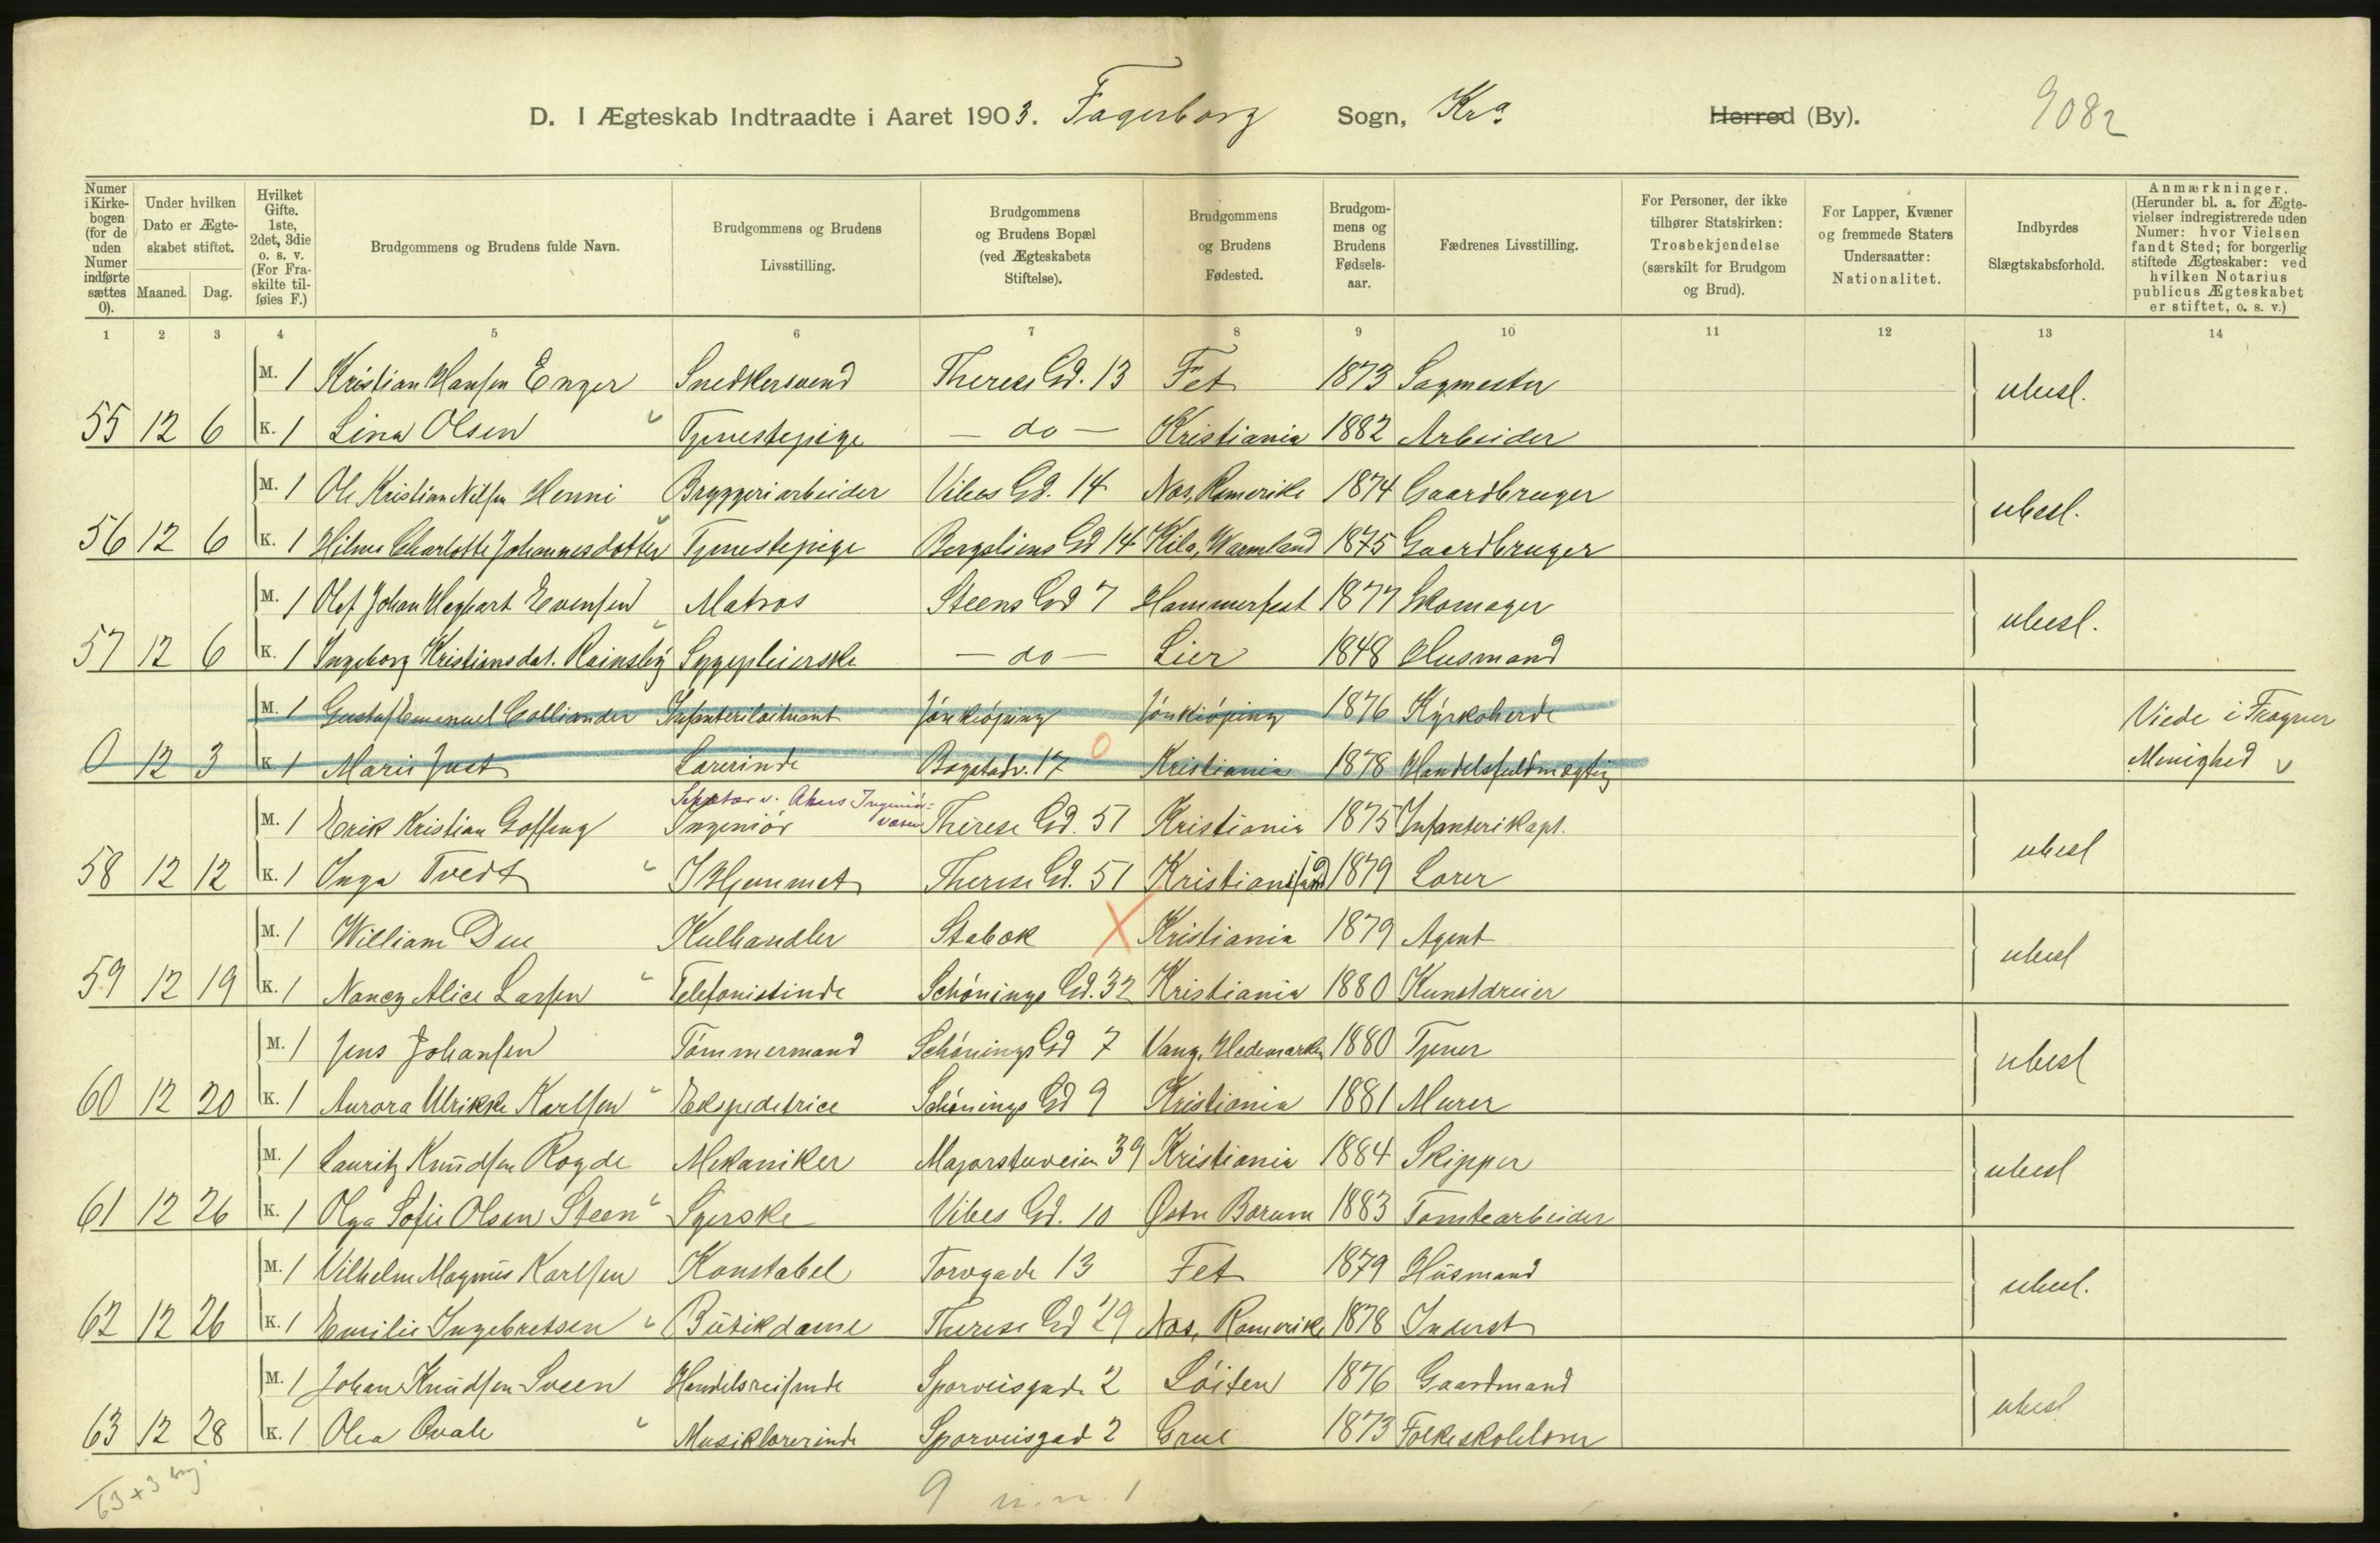 D. I Ægteskab Indtraadte i Aaret 1903. Fagerborg Sogn, Kra. Herred (By). 9082
Numer i Kirkebogen (for de uden Numer indførte sættes 0). Under hvilken Dato er Ægteskabet stiftet. Maaned. Dag. Hvilket Gifte. 1ste, 2det, 3die o. s. v. (For Fraskilte tilføies F.) Brudgommens og Brudens fulde Navn. Brudgommens og Brudens Livsstilling. Brudgommens og Brudens Bopæl (ved Ægteskabets Stiftelse). Brudgommens og Brudens Fødested. Brudgommens og Brudens Fødselsaar. Fædrenes Livsstilling. For Personer, der ikke tilhører Statskirken: Trosbekjendelse (særskilt for Brudgom og Brud). For Lapper, Kvæner og fremmede Staters Undersaatter: Nationalitet. Indbyrdes Slægtskabsforhold. Anmærkninger. (Herunder bl. a. for Ægtevielser indregistrerede uden Numer: hvor Vielsen fandt Sted; for borgerlig stiftede Ægteskaber: ved hvilken Notarius publicus Ægteskabet er stiftet, o. s. v.)
1 2 3 4 5 6 7 8 9 10 11 12 13 14
M. 1 Kristian Hansen Enger Snedkersvend Therese Gd. 13 Fet 1873 Sagmester ubesl.
55 12 6 K. 1 Lina Olsen Tjenestepige — do — Kristiania 1882 Arbeider
M. 1 Ole Kristian Nilsen Henni Bryggeriarbeider Vibes Gd. 14 Nes, Romerike 1874 Gaardbruger ubesl.
56 12 6 K. 1 Hilma Charlotte Johannesdotter Tjenestepige Bergsliens Gd 14 Kila, Warmland 1875 Gaardbruger
M. 1 Olaf Johan Meghart Evensen Matros Steens Gd 7 Hammerfest 1877 Skomager ubesl.
57 12 6 K. 1 Ingeborg Kristiansdat. Sygepleierske — do — Lier 1848 Husmand
M. 1 Gustaf Emanuel Colliander Infanteriløitnant Jönköping Jönköping 1876 Kyrkoherde Viede i Frogner
0 12 3 K. 1 Marie Just Lærerinde Bogstadv. 17 0 Kristiania 1878 Handelsfuldmægtig Menighed v
v. Akers Ingeniørvæsen
M. 1 Erik Kristian Goffeng Ingeniør Therese Gd. 51 Kristiania 1875 Infanterikapt. ubesl
58 12 12 K. 1 Inga Tvedt I Hjemmet Therese Gd. 51 Kristiansund 1879 Lærer
M. 1 William Due Kulhandler Stabæk X Kristiania 1879 Agent ubesl
59 12 19 K. 1 Nancy Alice Larsen Telefonistinde Schønings Gd. 32 Kristiania 1880 Kunstdreier
M. 1 Jens Johansen Tömmermand Schønings Gd 7 Vang, Hedemarken 1880 Tjener ubesl
60 12 20 K. 1 Aurora Ulrikke Karlsen Ekspeditrice Schønings Gd 9 Kristiania 1881 Murer
M. 1 Lauritz Knudsen Rogde Mekaniker Majorstuveien 39 Kristiania 1884 Skipper ubesl
61 12 26 K. 1 Olga Sofie Olsen Steen Syerske Vibes Gd. 10 Østre Bærum 1883 Tomtearbeider
M. 1 Vilhelm Magnus Karlsen Konstabel Torvgade 13 Fet 1879 Husmand ubesl.
62 12 26 K. 1 Emilie Ingebretsen Butikdame Therese Gd 29 Nes, Romerike 1878 Inderst
M. 1 Johan Knudsen Sveen Handelsreisende Sporveisgade 2 Löiten 1876 Gaardmand ubesl
63 12 28 K. 1 Olea Qvale Musiklærerinde Sporveisgad 2 Grue 1873 Folkeskolelærer
63 + 3
9 n. n. 1